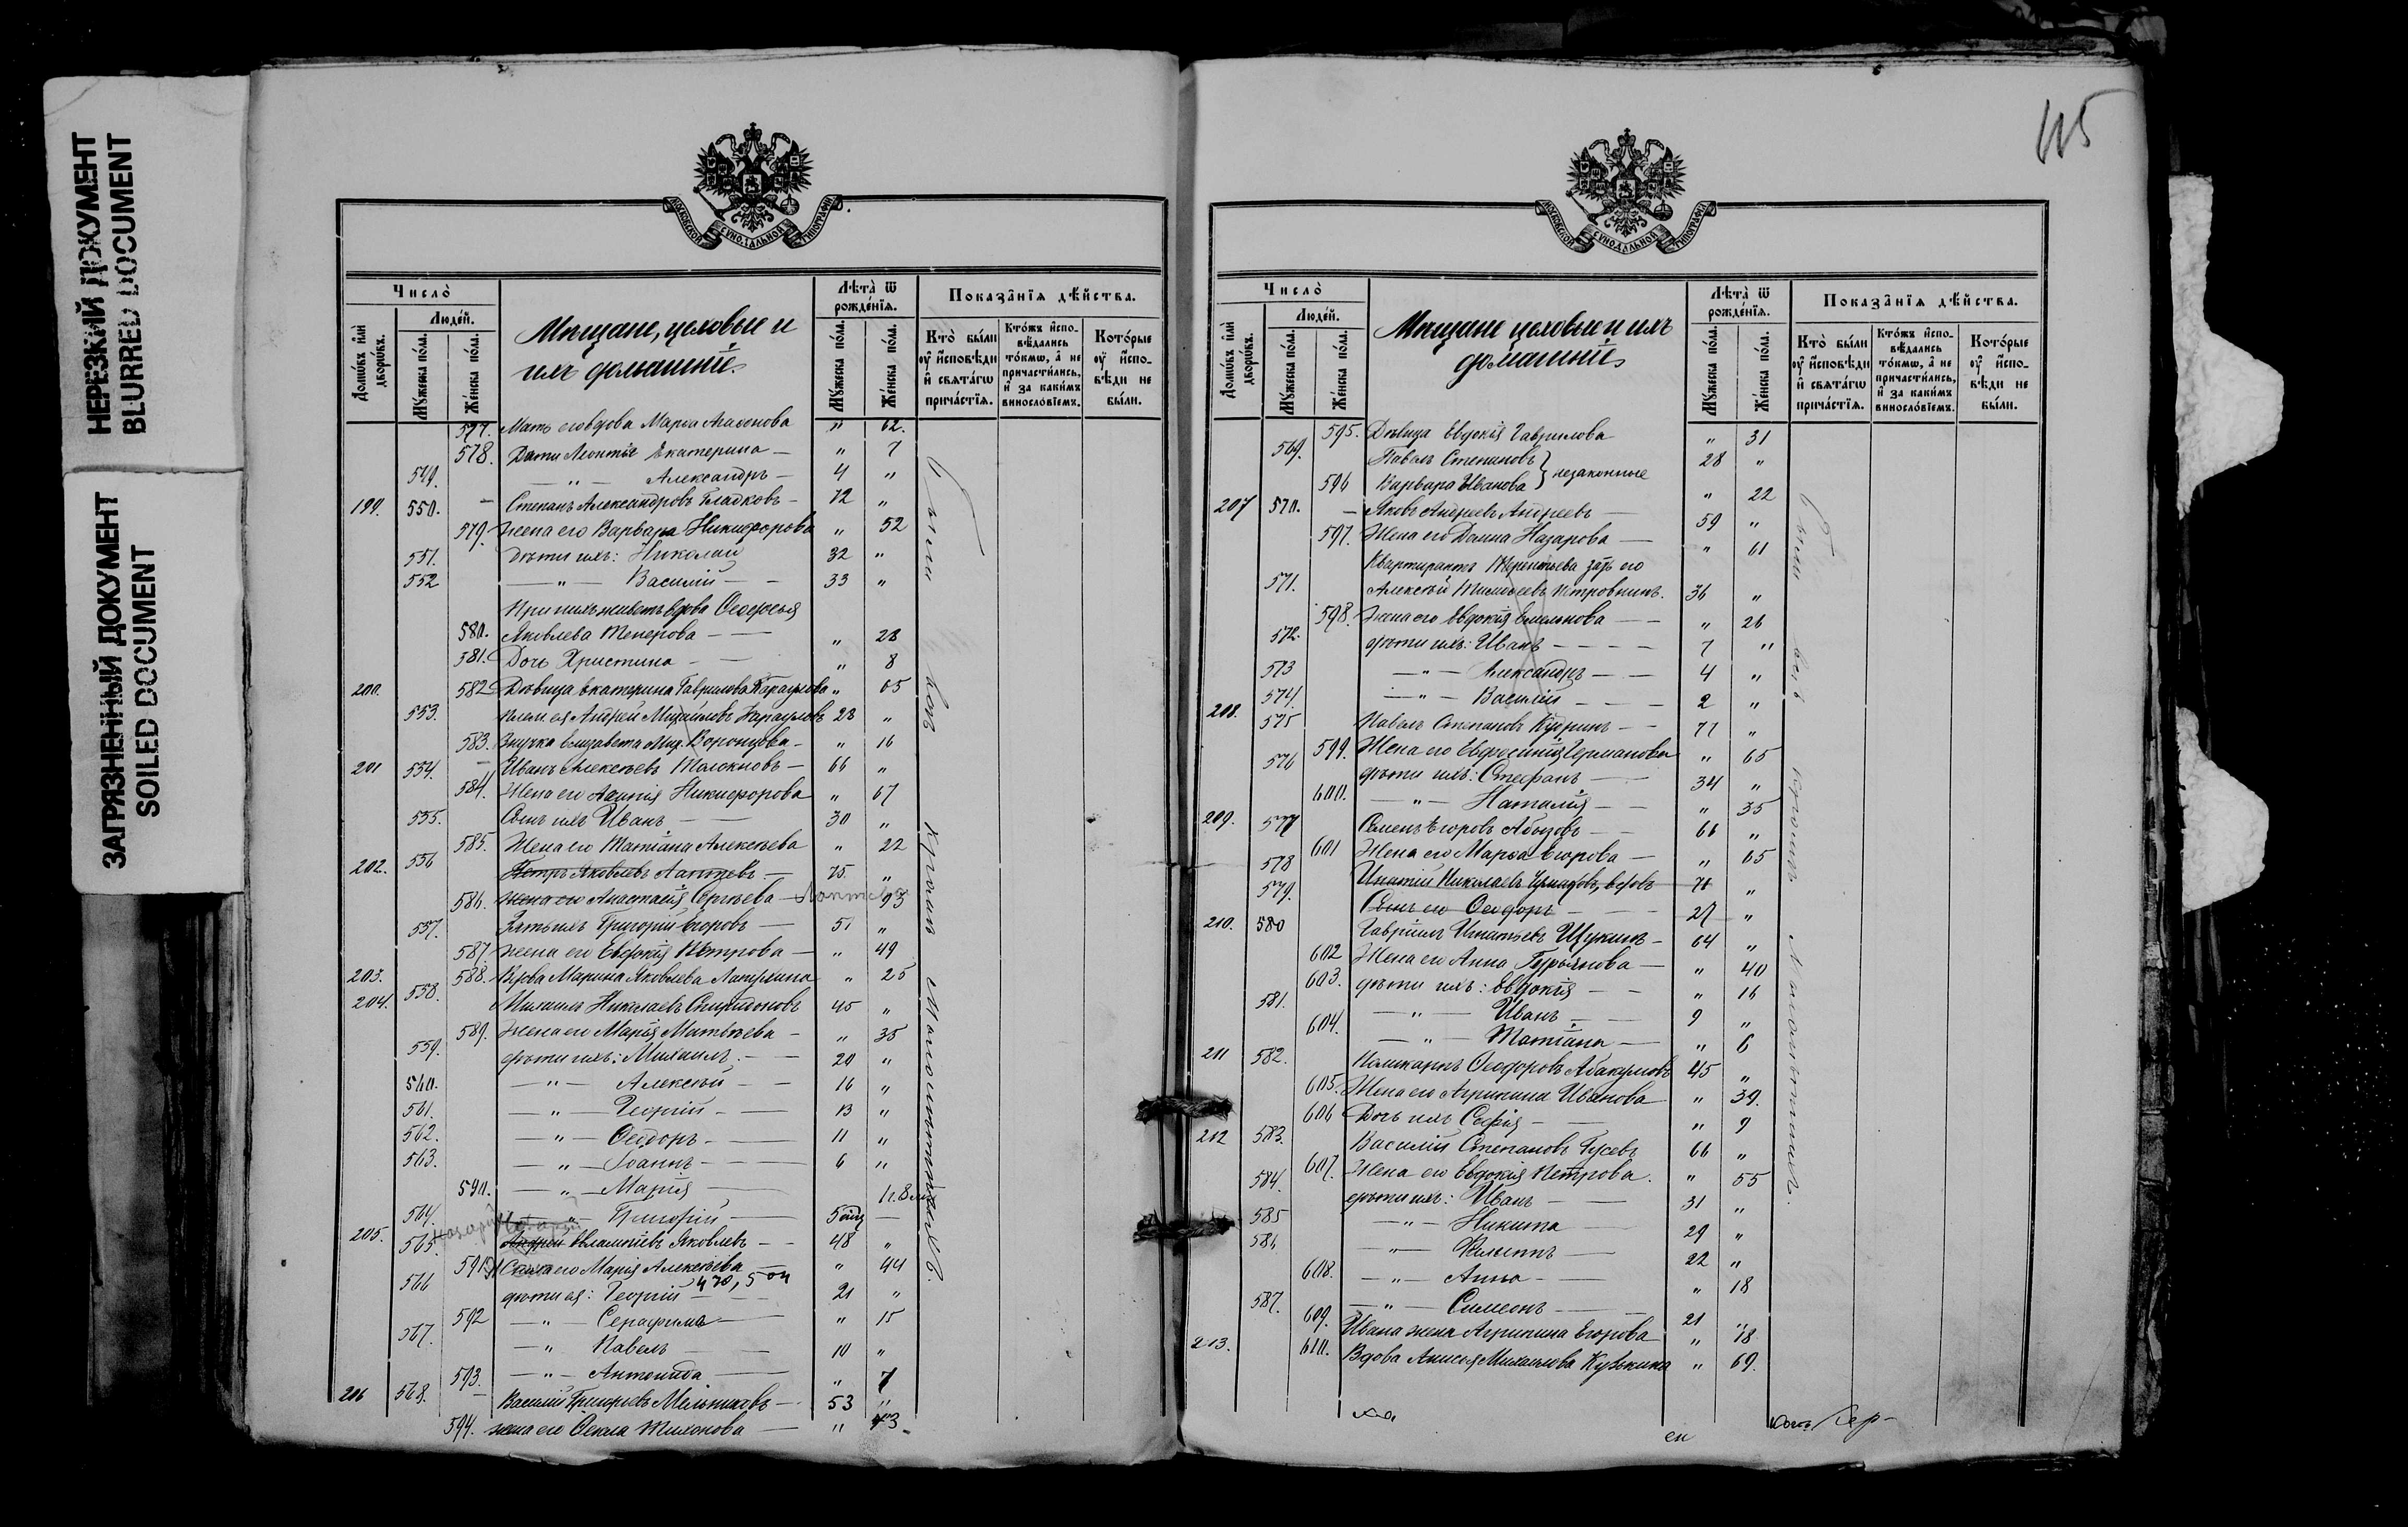 НЕРЕЗКИЙ ДОКУМЕНТ
BLURRED DOCUMENT
ЗАГРЯЗНЕННЫЙ ДОКУМЕНТ
SOILED DOCUMENT
МОСКОВСКОЙ СУНОДАЛЬНОЙ ТИПОГРАФІИ
Число̀
Люде́й.
Домѡ́въ и҆лѝ дворѡ́въ.
Мꙋ́жеска по́ла.
Же́нска по́ла.
Мѣщане, цеховые и
ихъ домашніе.
Лѣта̀ ѿ рожде́нїѧ.
Мꙋ́жеска по́ла.
Же́нска по́ла.
Показа̑нїѧ дѣ́йства.
Кто̀ бы́ли оу҆ и҆сповѣ́ди и҆ свѧта́гѡ прича́стїѧ.
Кто́жъ и҆спо-вѣ́дались то́кмѡ, а҆ не причасти́лись, и҆ за каки́мъ виносло́вїемъ.
Кото́рые оу҆ и҆спо-вѣ́ди не бы́ли.
577. Мать его вдова Марѳа Агаѳонова " 62.
578. Дѣти Леонтія Екатерина — " 7
549. — " — Александръ — 4 "
199. 550. — Степанъ Александровъ Гладковъ — 72 "
579. Жена его Варвара Никифорова " 52
551. Дѣти ихъ: Николай 32 "
552 — " — Василій — 33 "
При нихъ живетъ вдова Ѳеодосья
580. Яковлева Тенерова — " 28
581. Дочь Христина — " 8
200. 582 Дѣвица Екатерина Гаврилова Караулова " 65
553. Плем. ея Андрей Михайловъ Караулов 23 "
583. Внучка Елизавета Мих. Воронцова — " 16
201 554. — Иванъ Алексѣевъ Толокновъ — 66 "
584. Жена его Агапія Никифорова " 67
555. Сынъ ихъ Иванъ — 30 "
585. Жена его Татіана Алексѣева " 22
202. 556 Петръ Яковлевъ Лаптевъ — 75. "
586. жена его Анастасія Сергѣева — Лаптева 93
557. Зять ихъ Григорій Егоровъ — 51 "
587. жена его Евдокія Петрова — " 49
203. 588. Вдова Марина Яковлева " 25
204. 558. Михаилъ Николаевъ Спиридоновъ 45 "
589. Жена его Марія Матвѣева — " 35
559. дѣти ихъ: Михаилъ — 20 "
560. — " — Алексѣй — 16 "
561. — " — Георгій — 13 "
562. — " — Ѳеодоръ — 11 "
563. — " — Іоаннъ — 6 "
590. — " — Марія — 1 г. 8 м.
564. — " — Григорій — 5
205. 565 Андрей Евлампіевъ Яковлевъ — 48 "
591. его Марія Алексѣева — " 44
566 дѣти ея: Георгій 21 "
592 — " — Серафима — " 15
567. — " Павелъ — 10 "
593. — " — Антонида — " 7
206 568. — Василій Григорьевъ Мельниковъ — 53 "
594. жена его Ѳекла Тихонова — " 43
Были всѣ кромѣ
115
МОСКОВСКОЙ СУНОДАЛЬНОЙ ТИПОГРАФІИ
Число̀
Люде́й.
Домѡ́въ и҆лѝ дворѡ́въ.
Мꙋ́жеска по́ла.
Же́нска по́ла.
Мѣщане цеховые и ихъ
домашніе
Лѣта̀ ѿ рожде́нїѧ.
Мꙋ́жеска по́ла.
Же́нска по́ла.
Показа̑нїѧ дѣ́йства.
Кто̀ бы́ли оу҆ и҆сповѣ́ди и҆ свѧта́гѡ прича́стїѧ.
Кто́жъ и҆спо-вѣ́дались то́кмѡ, а҆ не причасти́лись, и҆ за каки́мъ виносло́вїемъ.
Кото́рые оу҆ и҆спо-вѣ́ди не бы́ли.
595. Дѣвица Евдокія Гаврилова " 31
569. Павелъ Степановъ 28 "
596 Варвара Иванова } незаконные " 22
207 570. — Яковъ Андреевъ Андреевъ — 59 "
597. Жена его Домна Назарова — " 61
Квартирантъ Терентьева зять его
571. Алексѣй Тимоѳеевъ Петровнинъ. 36 "
598. Жена его Евдокія — " 26
572. дѣти ихъ: Иванъ — 7 "
573 — " — Александръ — 4 "
574. — " — Василій — 2 "
208. 575 Павелъ Степановъ Кудринъ — 71 "
599. Жена его Евфросинія Германова " 65
576 дѣти ихъ: Стефанъ — 34 "
600. — " — Наталія — " 35
209. 577 Семенъ Егоровъ Абызовъ — 66 "
601 Жена его Марѳа Егорова — " 65
578 Игнатій Николаевъ вдовъ 71 "
579. Сынъ его Ѳеодоръ — 27 "
210. 580 Гавріилъ Игнатьевъ Щукинъ — 64 "
602 Жена его Анна Гурьянова — " 40
603. дѣти ихъ: Евдокія — " 16
581. — " — Иванъ — 9 "
604. — " — Татіана — " 6
211 582. Поликарпъ Ѳеодоровъ Абакумовъ 45 "
605. Жена его Агрипина Иванова " 39.
606 Дочь ихъ Софія — " 9
212 583. Василій Степановъ Гусевъ 66 "
607. Жена его Евдокія Петрова. " 55
584. дѣти ихъ: Иванъ — 31 "
585 — " — Никита 29 "
586 — " — Филиппъ — 22 "
608. — " — Анна — " 18
587. — " — Симеонъ — 21 "
609. Ивана жена Агрипина Егорова " 18
213. 610. Вдова Анисья Михаилова Кузькина " 69.
Были всѣ кромѣ